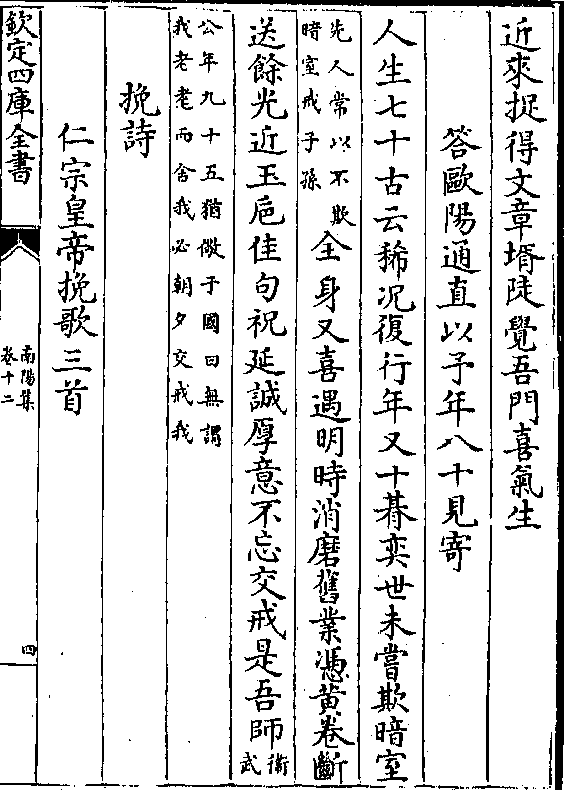 近來捉得文章壻陡覺吾門喜氣生
答歐陽通直以予年八十見寄
人生七十古云稀况復行年又十朞奕世未嘗欺暗室
先人常以不欺
暗室戒子孫
全身又喜遇明時消磨舊業憑黄卷斷
送餘光近玉巵佳句祝延誠厚意不忘交戒是吾師
衛
武
公年九十五猶儆于國曰無謂
我老耄而舍我必朝夕交戒我
挽詩
仁宗皇帝挽歌三首
欽定四庫全書
南陽集
卷十二
四